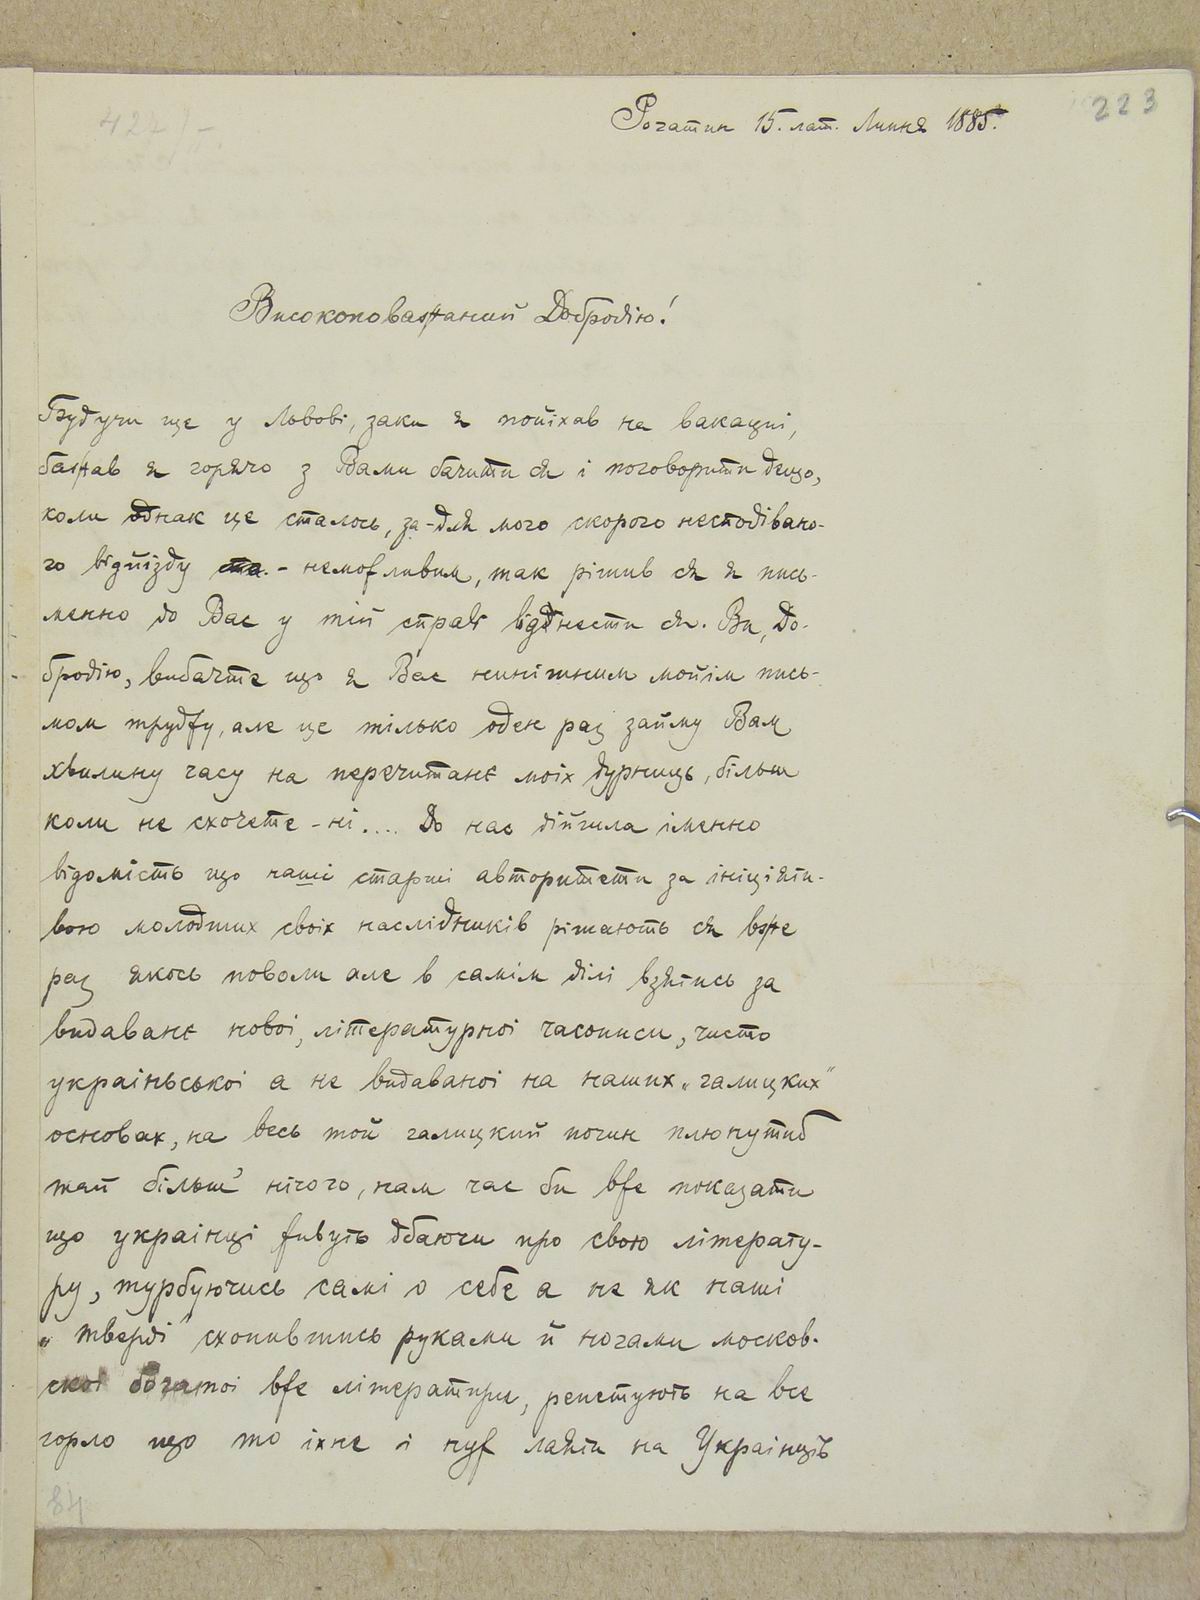 223
4221-
Рогатин 15. лат. Липня 1885.
Високоповажаний Добродію!
Будучи ще у Львові, заки я поїхав на вакациі,
бажав я горячо з Вами бачити ся і поговорити дещо,
коли однак це сталось, за-для мого скорого несподівано-
го відїізду - неможливим, так рішив ся я пись-
менно до Вас у тій справі віднести ся. Ви, До-
бродію, вибачте що я Вас нинїшним моїм пись-
мом труджу, але це тілько оден раз займу Вам
хвилину часу на перечитанє моіх дурниць, більш
коли не схочете - ні.... До нас дійшла іменно
відомість що наші старші авторитети за ініціяти-
вою молодших своіх наслідників рішають ся вже
раз якось поволи але в самім ділі взятись за
видаванє новоі, літературноі часописи, чисто
украіньскоі а не видаваноі на наших „галицких"
основах, на весь той галицкий почин плюнутиб
тай більш нічого, нам час би вже показати
що украінці живуть дбаючи про свою літерату-
ру, турбуючись самі о себе а не як наші
„тверді" схопившись руками й ногами москов-
скоі богатоі вже літератури, репетують на все
горло що то іхне і нуж лаяти на Украінців
84